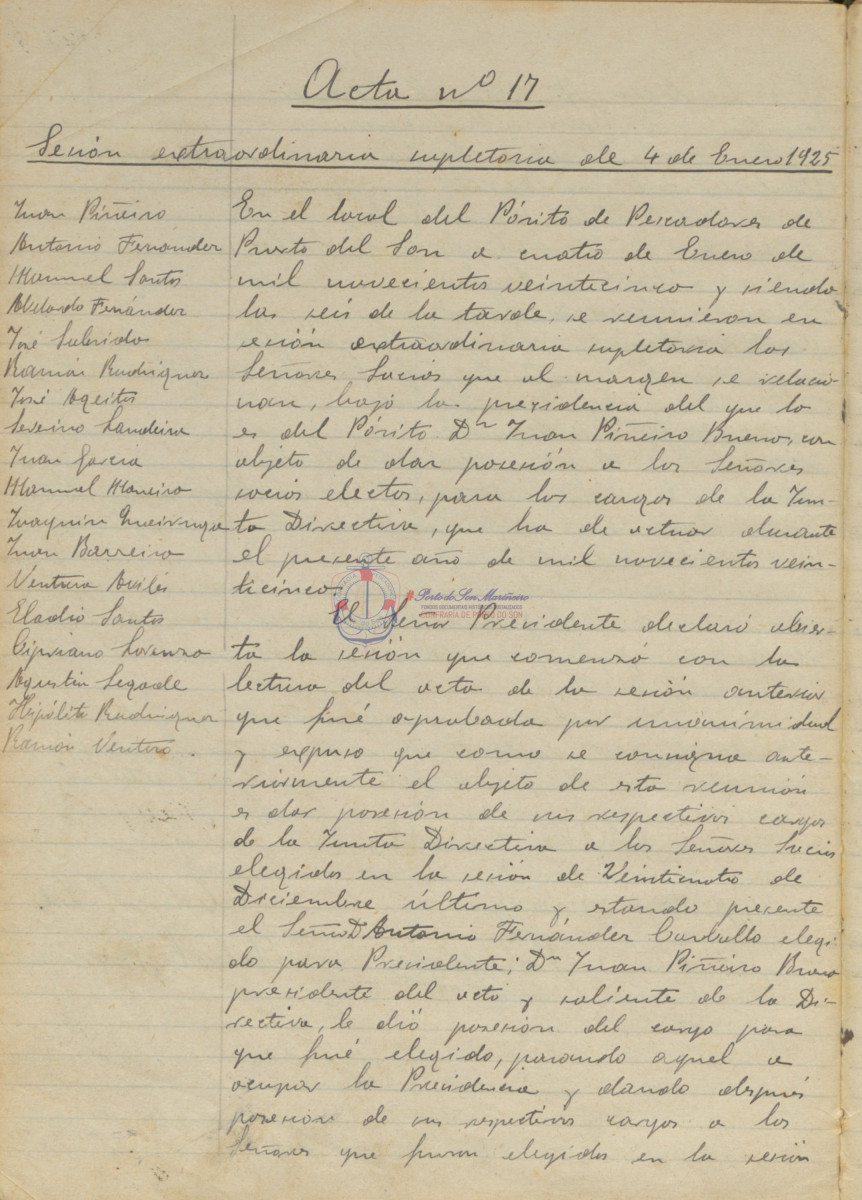 Acta nº 17
Sesión extraordinaria supletoria de 4 de Enero 1925
Juan Piñeiro
Antonio Fernández
Manuel Santos
Abelardo Fernández
José Salerido
Ramón Rodriguez
José Ageitos
Severino Landeira
Juan García
Manuel Maneiro
Joaquin Queiruga
Juan Barreiro
Ventura Avilés
Eladio Santos
Cipriano Lorenzo
Agustin Segade
Hipólito Rodriguez
Ramón Ventoso
En el local del Pósito de Pescadores de
Puerto del Son a cuatro de Enero de
mil novecientos veinticinco y siendo
las seis de la tarde, se reunieron en
sesión extraordinaria supletoria los
Señores Socios que al margen se relacio-
nan, bajo la presidencia del que lo
es del Pósito Dn Juan Piñeiro Bueno, con
objeto de dar posesión a los Señores
socios electos, para los cargos de la Jun-
ta Directiva, que ha de actuar durante
el presente año de mil novecientos vein-
ticinco.
El Señor Presidente declaró abier-
ta la sesión que comenzó con la
lectura del acta de la sesión anterior
que fué aprobada por unanimidad
y expuso que como se consigna ante-
riormente el objeto de esta reunión
es dar posesión de sus respectivos cargos
de la Junta Directiva a los Señores Socios
elegidos en la sesión de Veinticuatro de
Diciembre último y estando presente
el Señor D Antonio Fernández Carballo elegi-
do para Presidente; Dn Juan Piñeiro Bueno
presidente del acto y saliente de la Di-
rectiva, le dió posesión del cargo para
que fué elegido, pasando aquel a
ocupar la Presidencia y dando después
posesión de sus respectivos cargos a los
Señores que fueron elegidos en la sesión
Porto do Son Mariñeiro
FONDOS DOCUMENTAIS HISTÓRICOS DIXITALIZADOS
CONFRARÍA DE PORTO DO SON